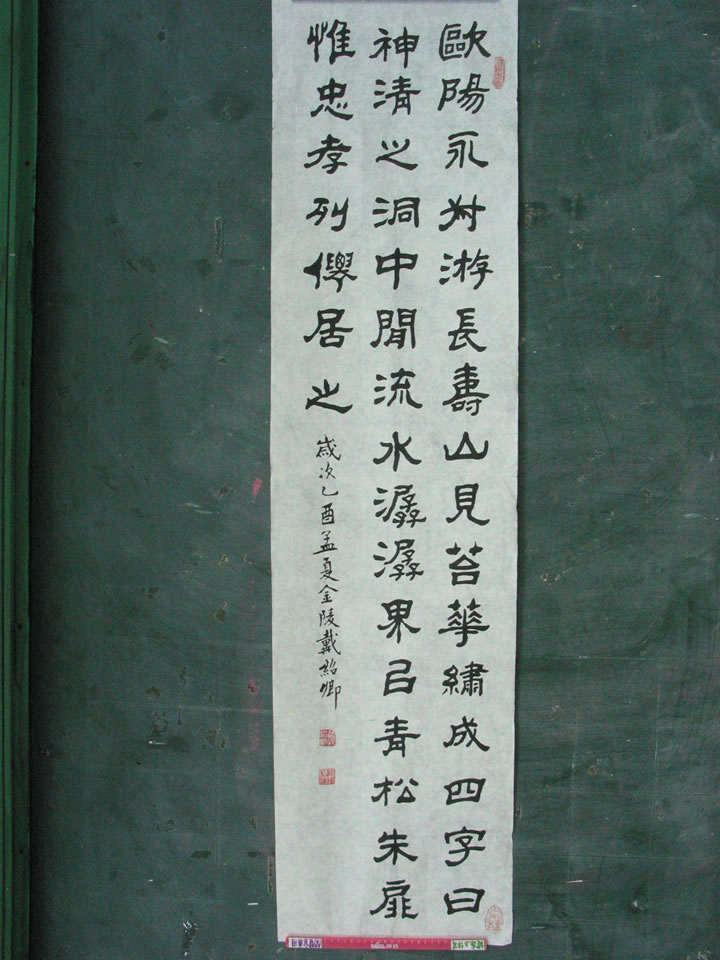 歐陽永叔游長壽山見苔華繡成四字曰
神清之洞中聞流水潺潺界㠯青松朱扉
惟忠孝列僊居之
歲次乙酉孟夏金陵戴紹卿